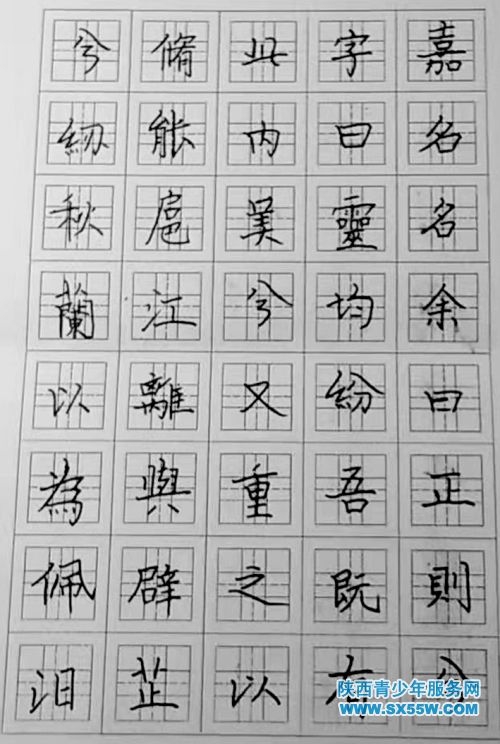 嘉名名余曰正則兮
字曰靈均紛吾既有
此内美兮又重之以
脩能扈江離與辟芷
兮紉秋蘭以為佩汩
陕西青少年服务网
www.sx55w.com